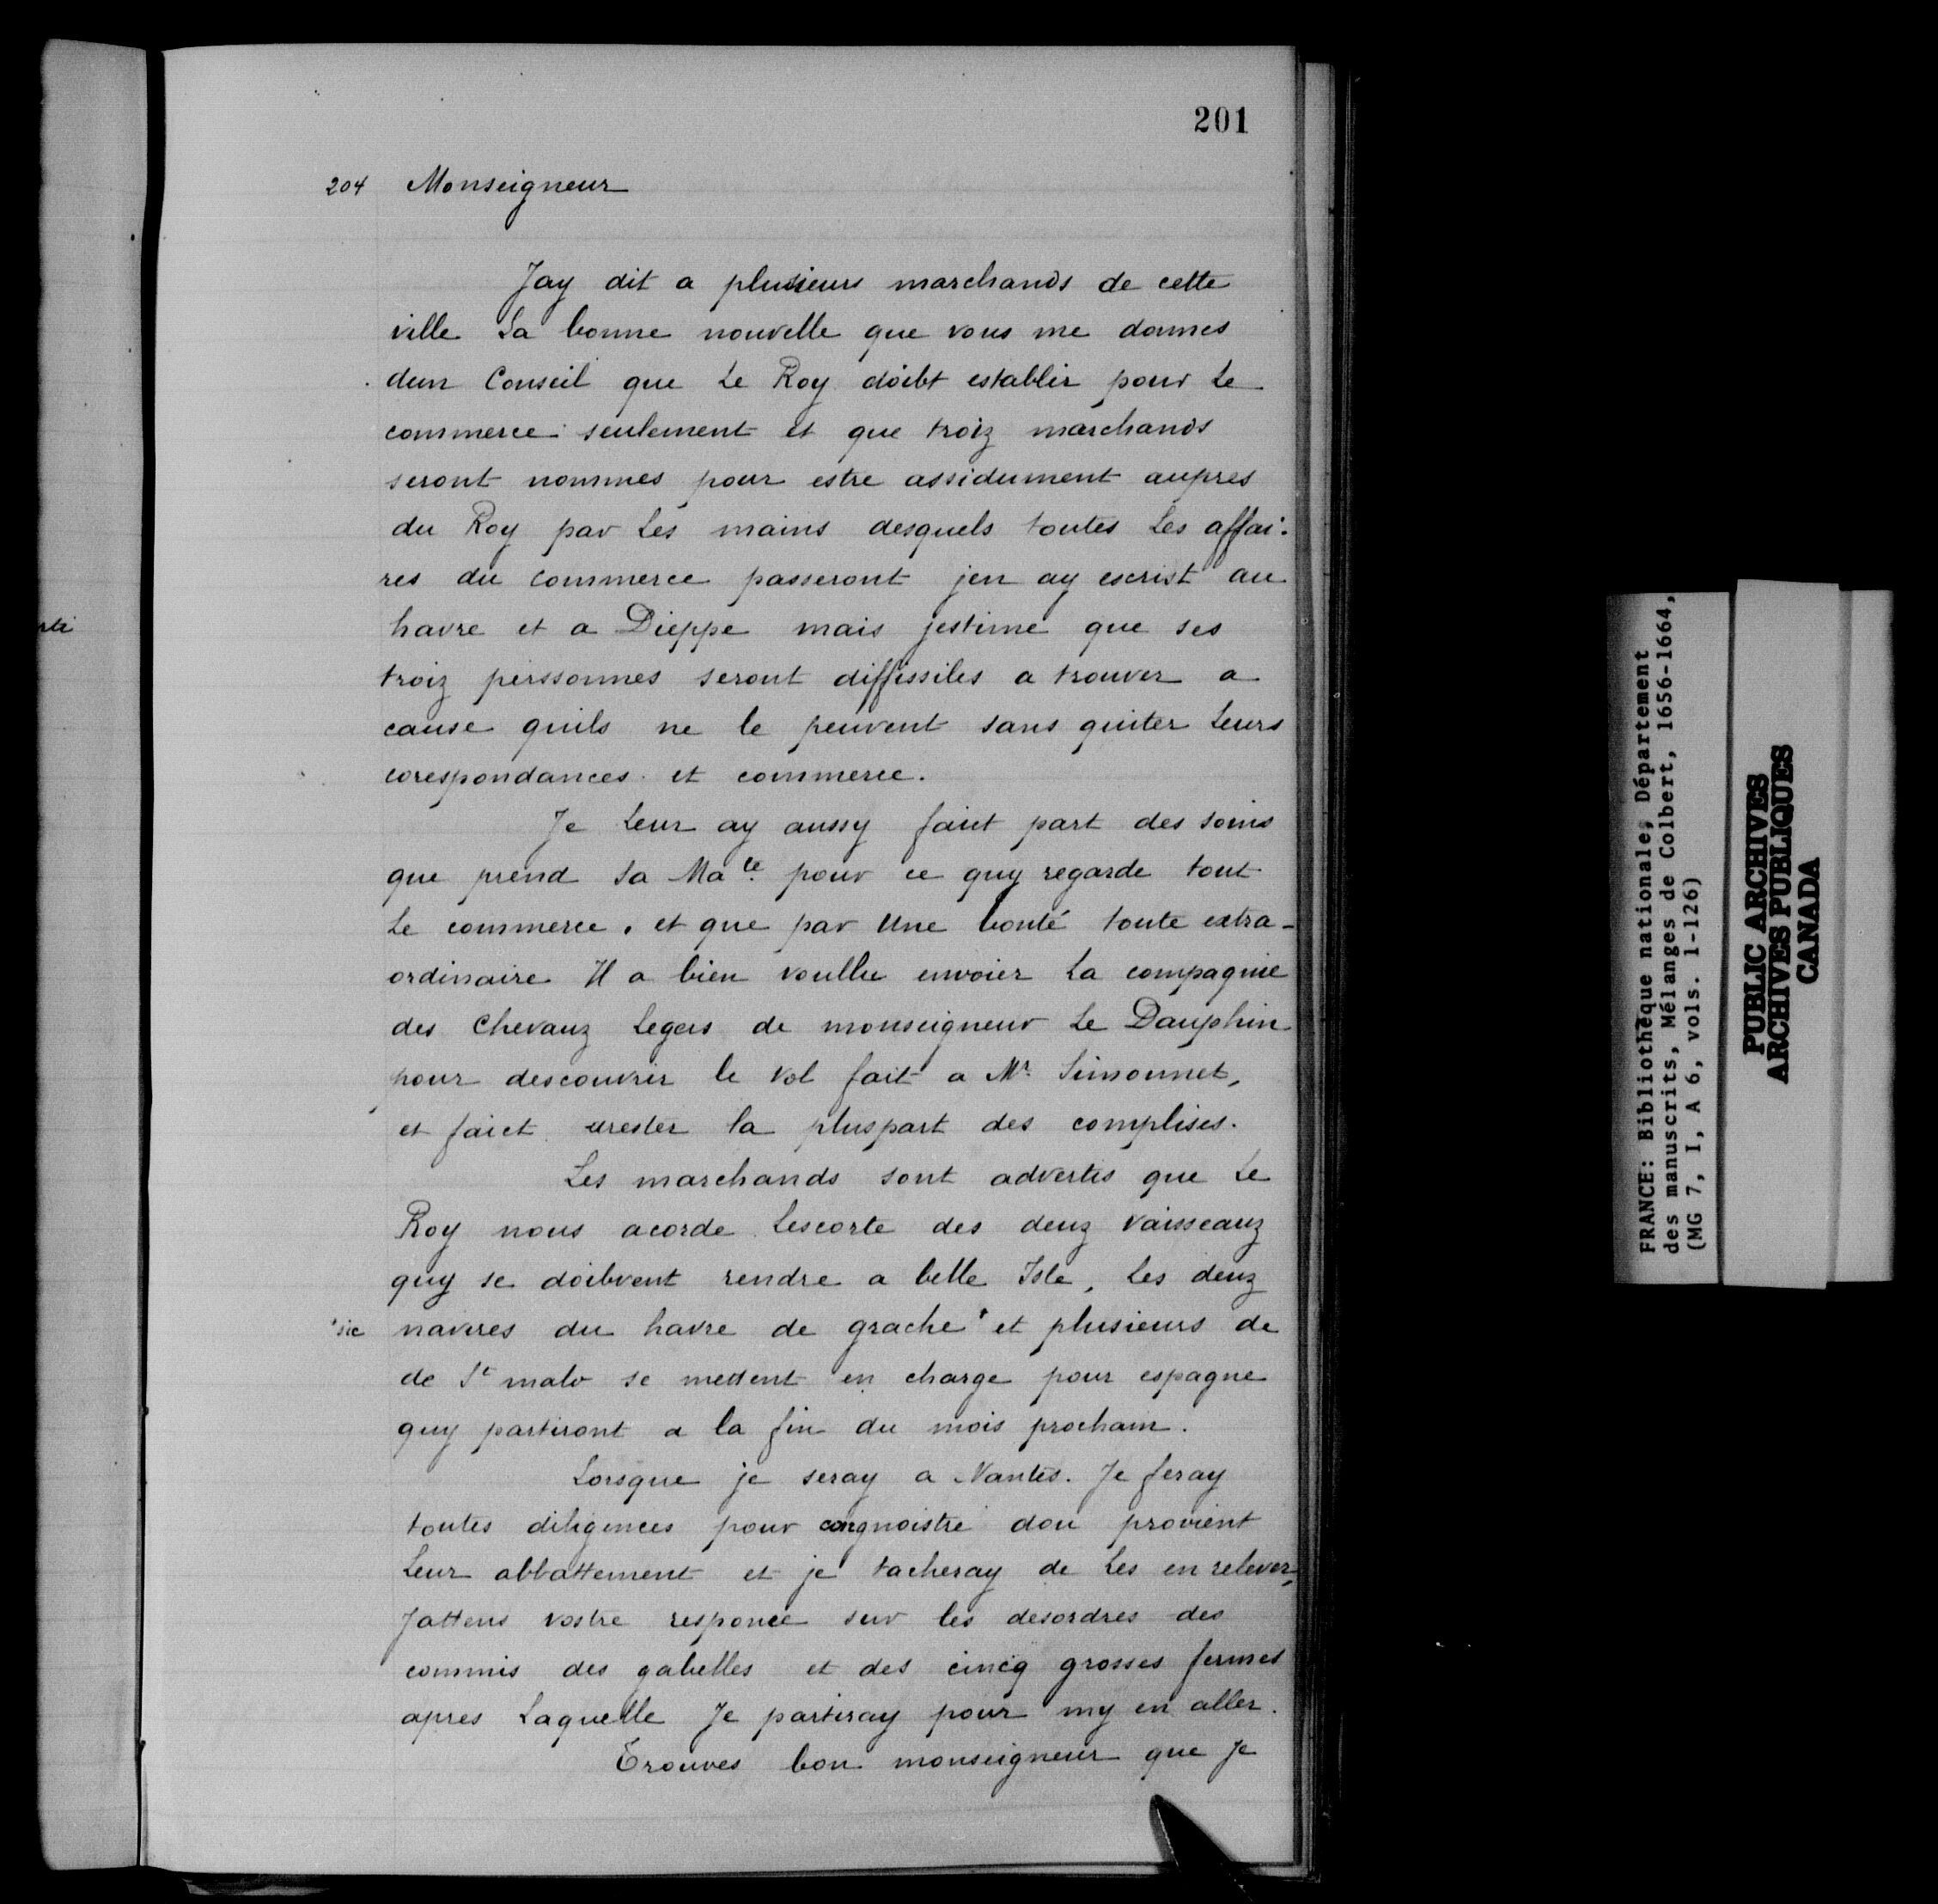 201
204 Monseigneur
Jay dit a plusieurs marchands de cette
ville La bonne nouvelle que vous me donnes
dun Conseil que Le Roy doibt establir pour Le
commerce seulement et que troiz marchands
seront nommes pour estre assidument aupres
du Roy par Les mains desquels toutes Les affai-
res du commerce passeront jen ay escrist au
havre et a Dieppe mais jestime que ses
troiz perssonnes seront diffissiles a trouver a
cause quils ne le peuvent sans quiter Leurs
corespondances et commerce.
Je Leur ay aussy faict part des soins
que prend Sa Ma.te pour ce quy regarde tout
Le commerce. et que par Une bonté toute extra-
ordinaire Il a bien voullu envoier La compagnie
des Chevauz Legers de monseigneur Le Dauphin
pour descouvrir le Vol fait a Mr. Simonnet,
et faict arester la pluspart des complises.
Les marchands sont advertis que Le
Roy nous acorde Lescorte des deuz Vaisseauz
quy se doibvent rendre a belle Isle, Les deuz
'sic navires du havre de grache' et plusieurs de
de St malo se mettent en charge pour espagne
quy partiront a la fin du mois prochain.
Lorsque je seray a Nantes. Je feray
toutes diligences pour congnoistre dou provient
Leur abbattement et je tacheray de Les en relever,
Jattens vostre responce sur les desordres des
commis des gabelles et des cincq grosses fermes
apres Laquelle Je partiray pour my en aller.
Trouves bon monseigneur que Je
FRANCE: Bibliothèque nationale, Département
des manuscrits, Mélanges de Colbert, 1656-1664,
(MG 7, I, A 6, vols. 1-126)
PUBLIC ARCHIVES
ARCHIVES PUBLIQUES
CANADA